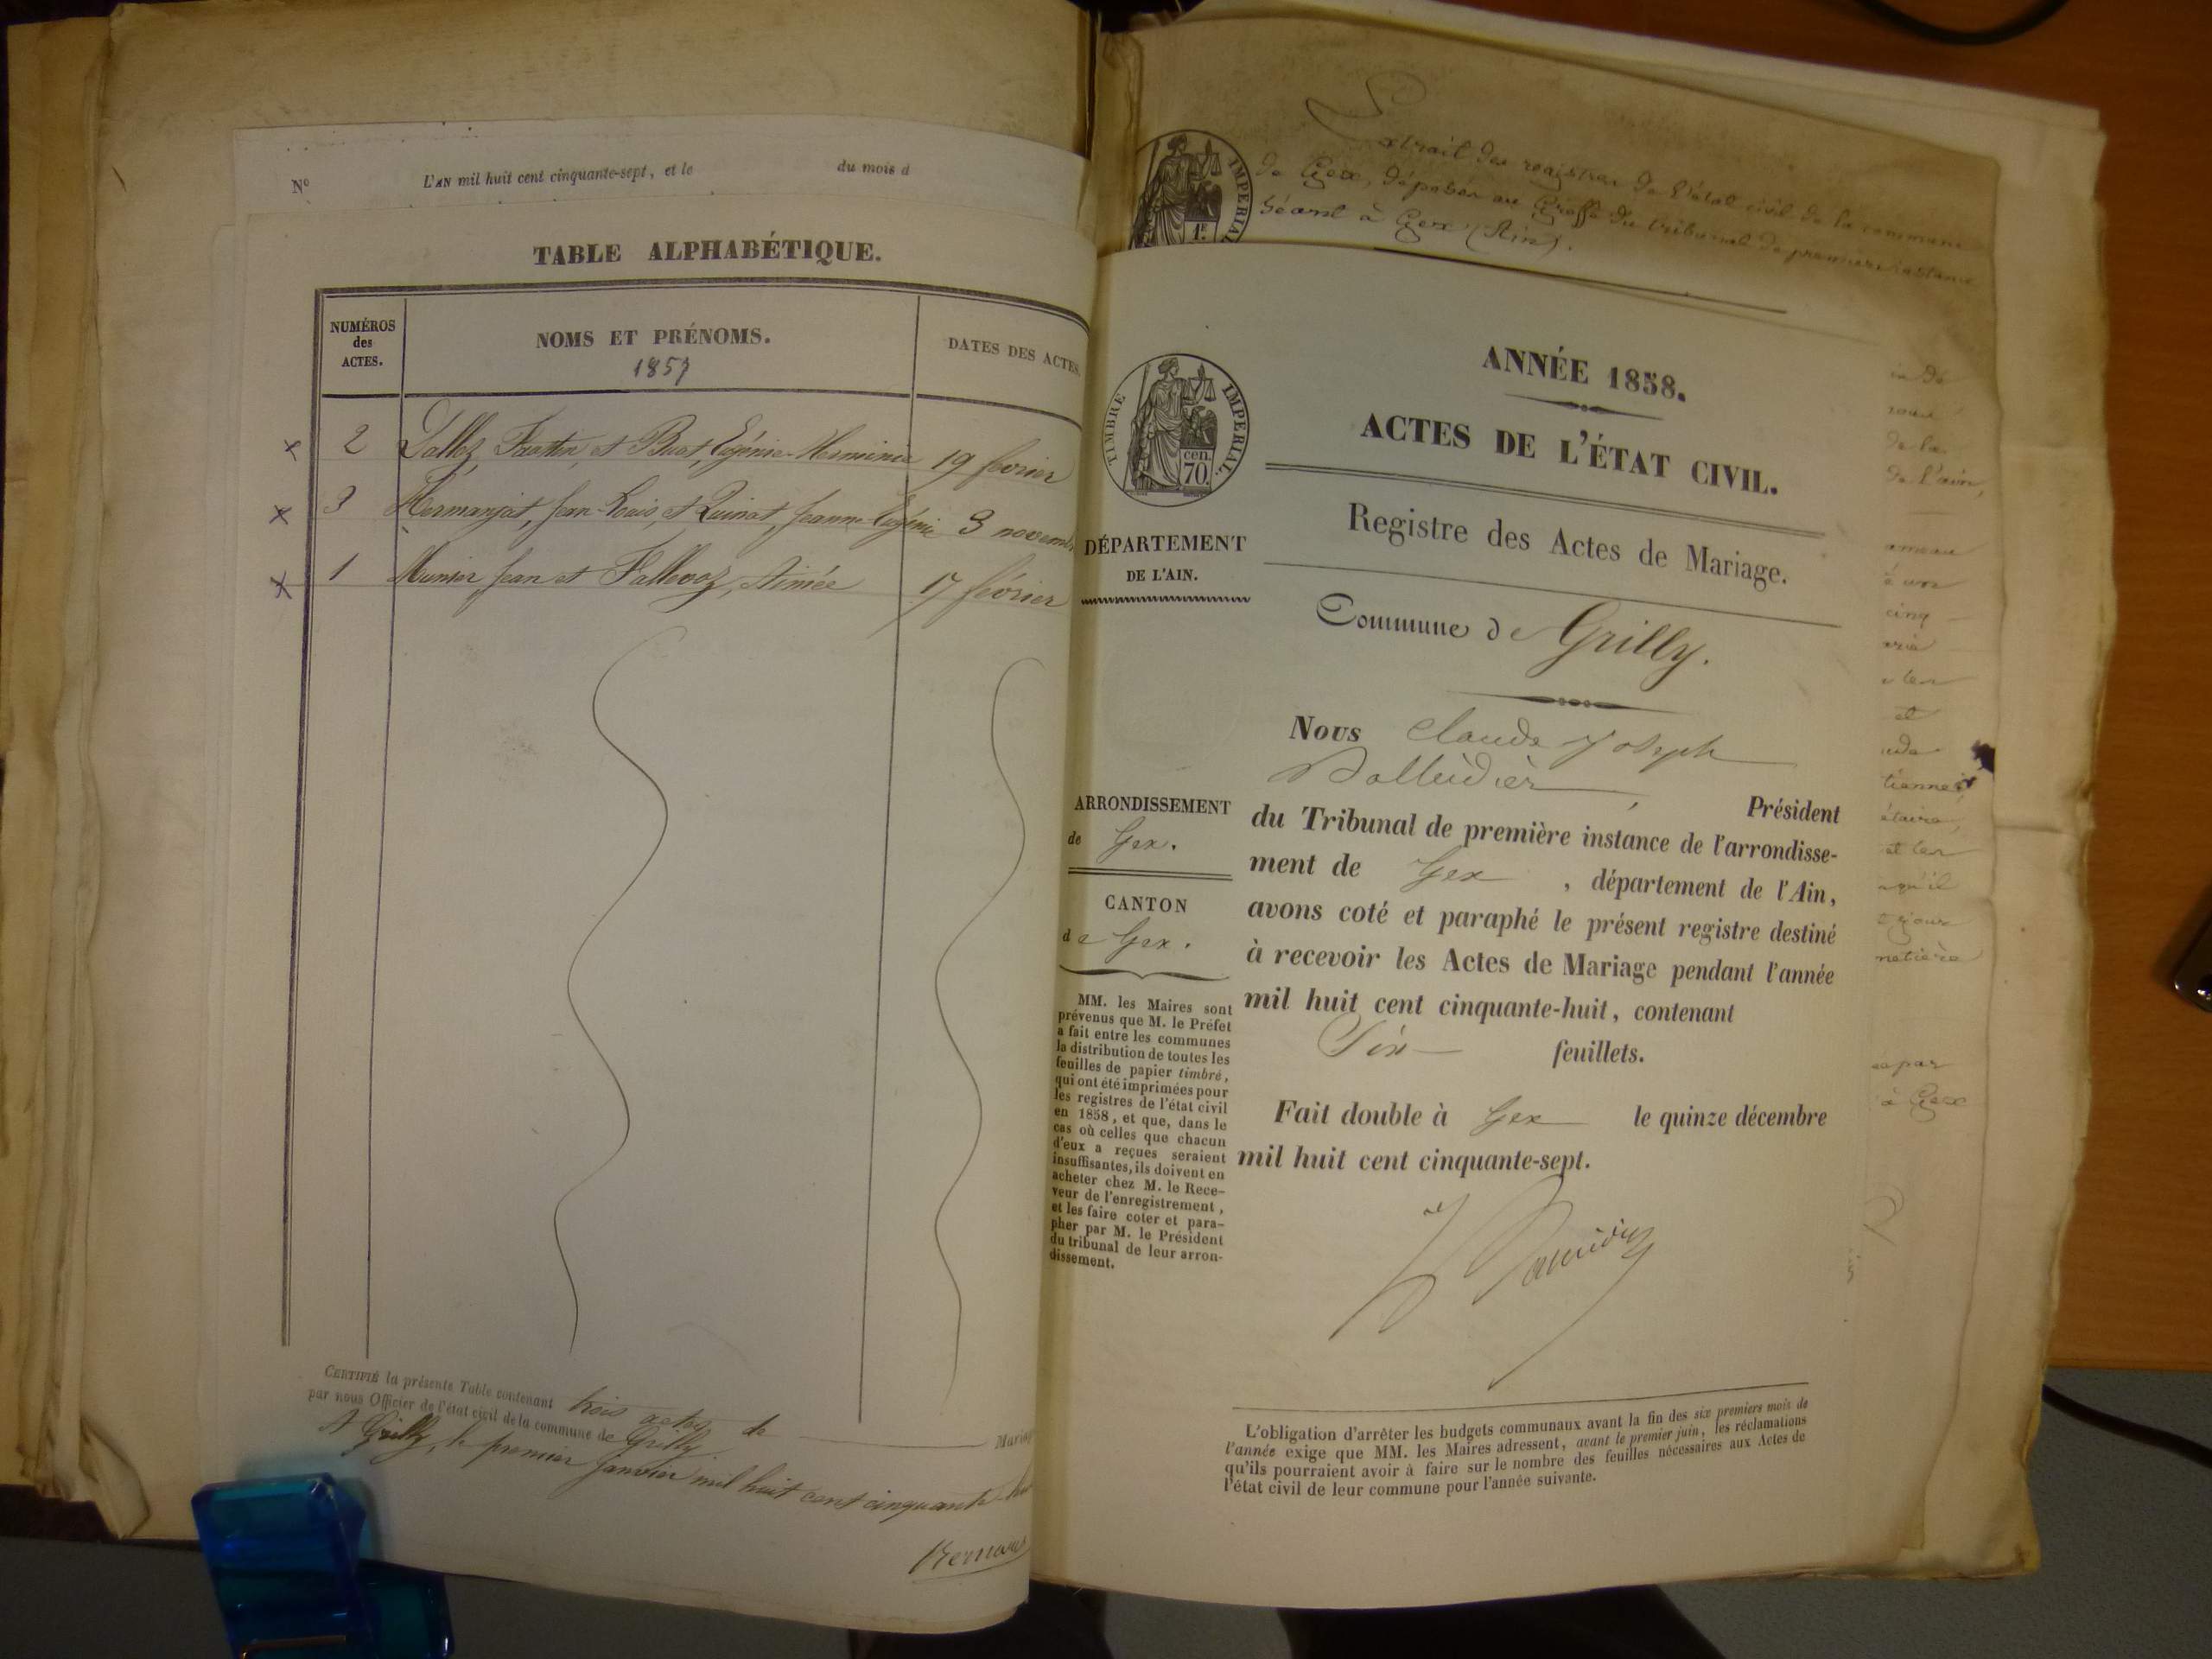 Nº L'AN mil huit cent cinquante-sept, et le du mois d
TABLE ALPHABÉTIQUE.
NUMÉROS
des
ACTES.
NOMS ET PRÉNOMS.
1857
DATES DES ACTES.
x 2 Dalloz, et Buat, Eugénie Herminie 19 février
x 3 Hermanjat, Jean-Louis, et Quinat, Jeanne Eugénie 3 novemb
x 1 Munier Jean et Fallevoz, Aimée 17 février
CERTIFIÉ la présente Table contenant trois actes de Mariag
par nous Officier de l'état civil de la commune de Grilly.
A Grilly, le premier janvier mil huit cent cinquante-hui
Extrait des registres de l'état civil de la commune
de Gex, déposés au Greffe du tribunal de première instance
Séant à Gex (Ain).
IMPERIAL
1F
TIMBRE IMPERIAL
cen.
70.
DÉPARTEMENT
DE L'AIN.
ARRONDISSEMENT
de Gex.
CANTON
de Gex.
MM. les Maires sont
prévenus que M. le Préfet
a fait entre les communes
la distribution de toutes les
feuilles de papier timbré,
qui ont été imprimées pour
les registres de l'état civil
en 1858, et que, dans le
cas où celles que chacun
d'eux a reçues seraient
insuffisantes, ils doivent en
acheter chez M. le Rece-
veur de l'enregistrement,
et les faire coter et para-
pher par M. le Président
du tribunal de leur arron-
dissement.
ANNÉE 1858.
ACTES DE L'ÉTAT CIVIL.
Registre des Actes de Mariage.
Commune de Grilly.
Nous Claude Joseph
Balleidier, Président
du Tribunal de première instance de l'arrondisse-
ment de Gex, département de l'Ain,
avons coté et paraphé le présent registre destiné
à recevoir les Actes de Mariage pendant l'année
mil huit cent cinquante-huit, contenant
Six feuillets.
Fait double à Gex le quinze décembre
mil huit cent cinquante-sept.
L'obligation d'arrêter les budgets communaux avant la fin des six premiers mois de
l'année exige que MM. les Maires adressent, avant le premier juin, les réclamations
qu'ils pourraient avoir à faire sur le nombre des feuilles nécessaires aux Actes de
l'état civil de leur commune pour l'année suivante.
de la
de l'ain,
cinq
et
et les
qu'il
à Gex